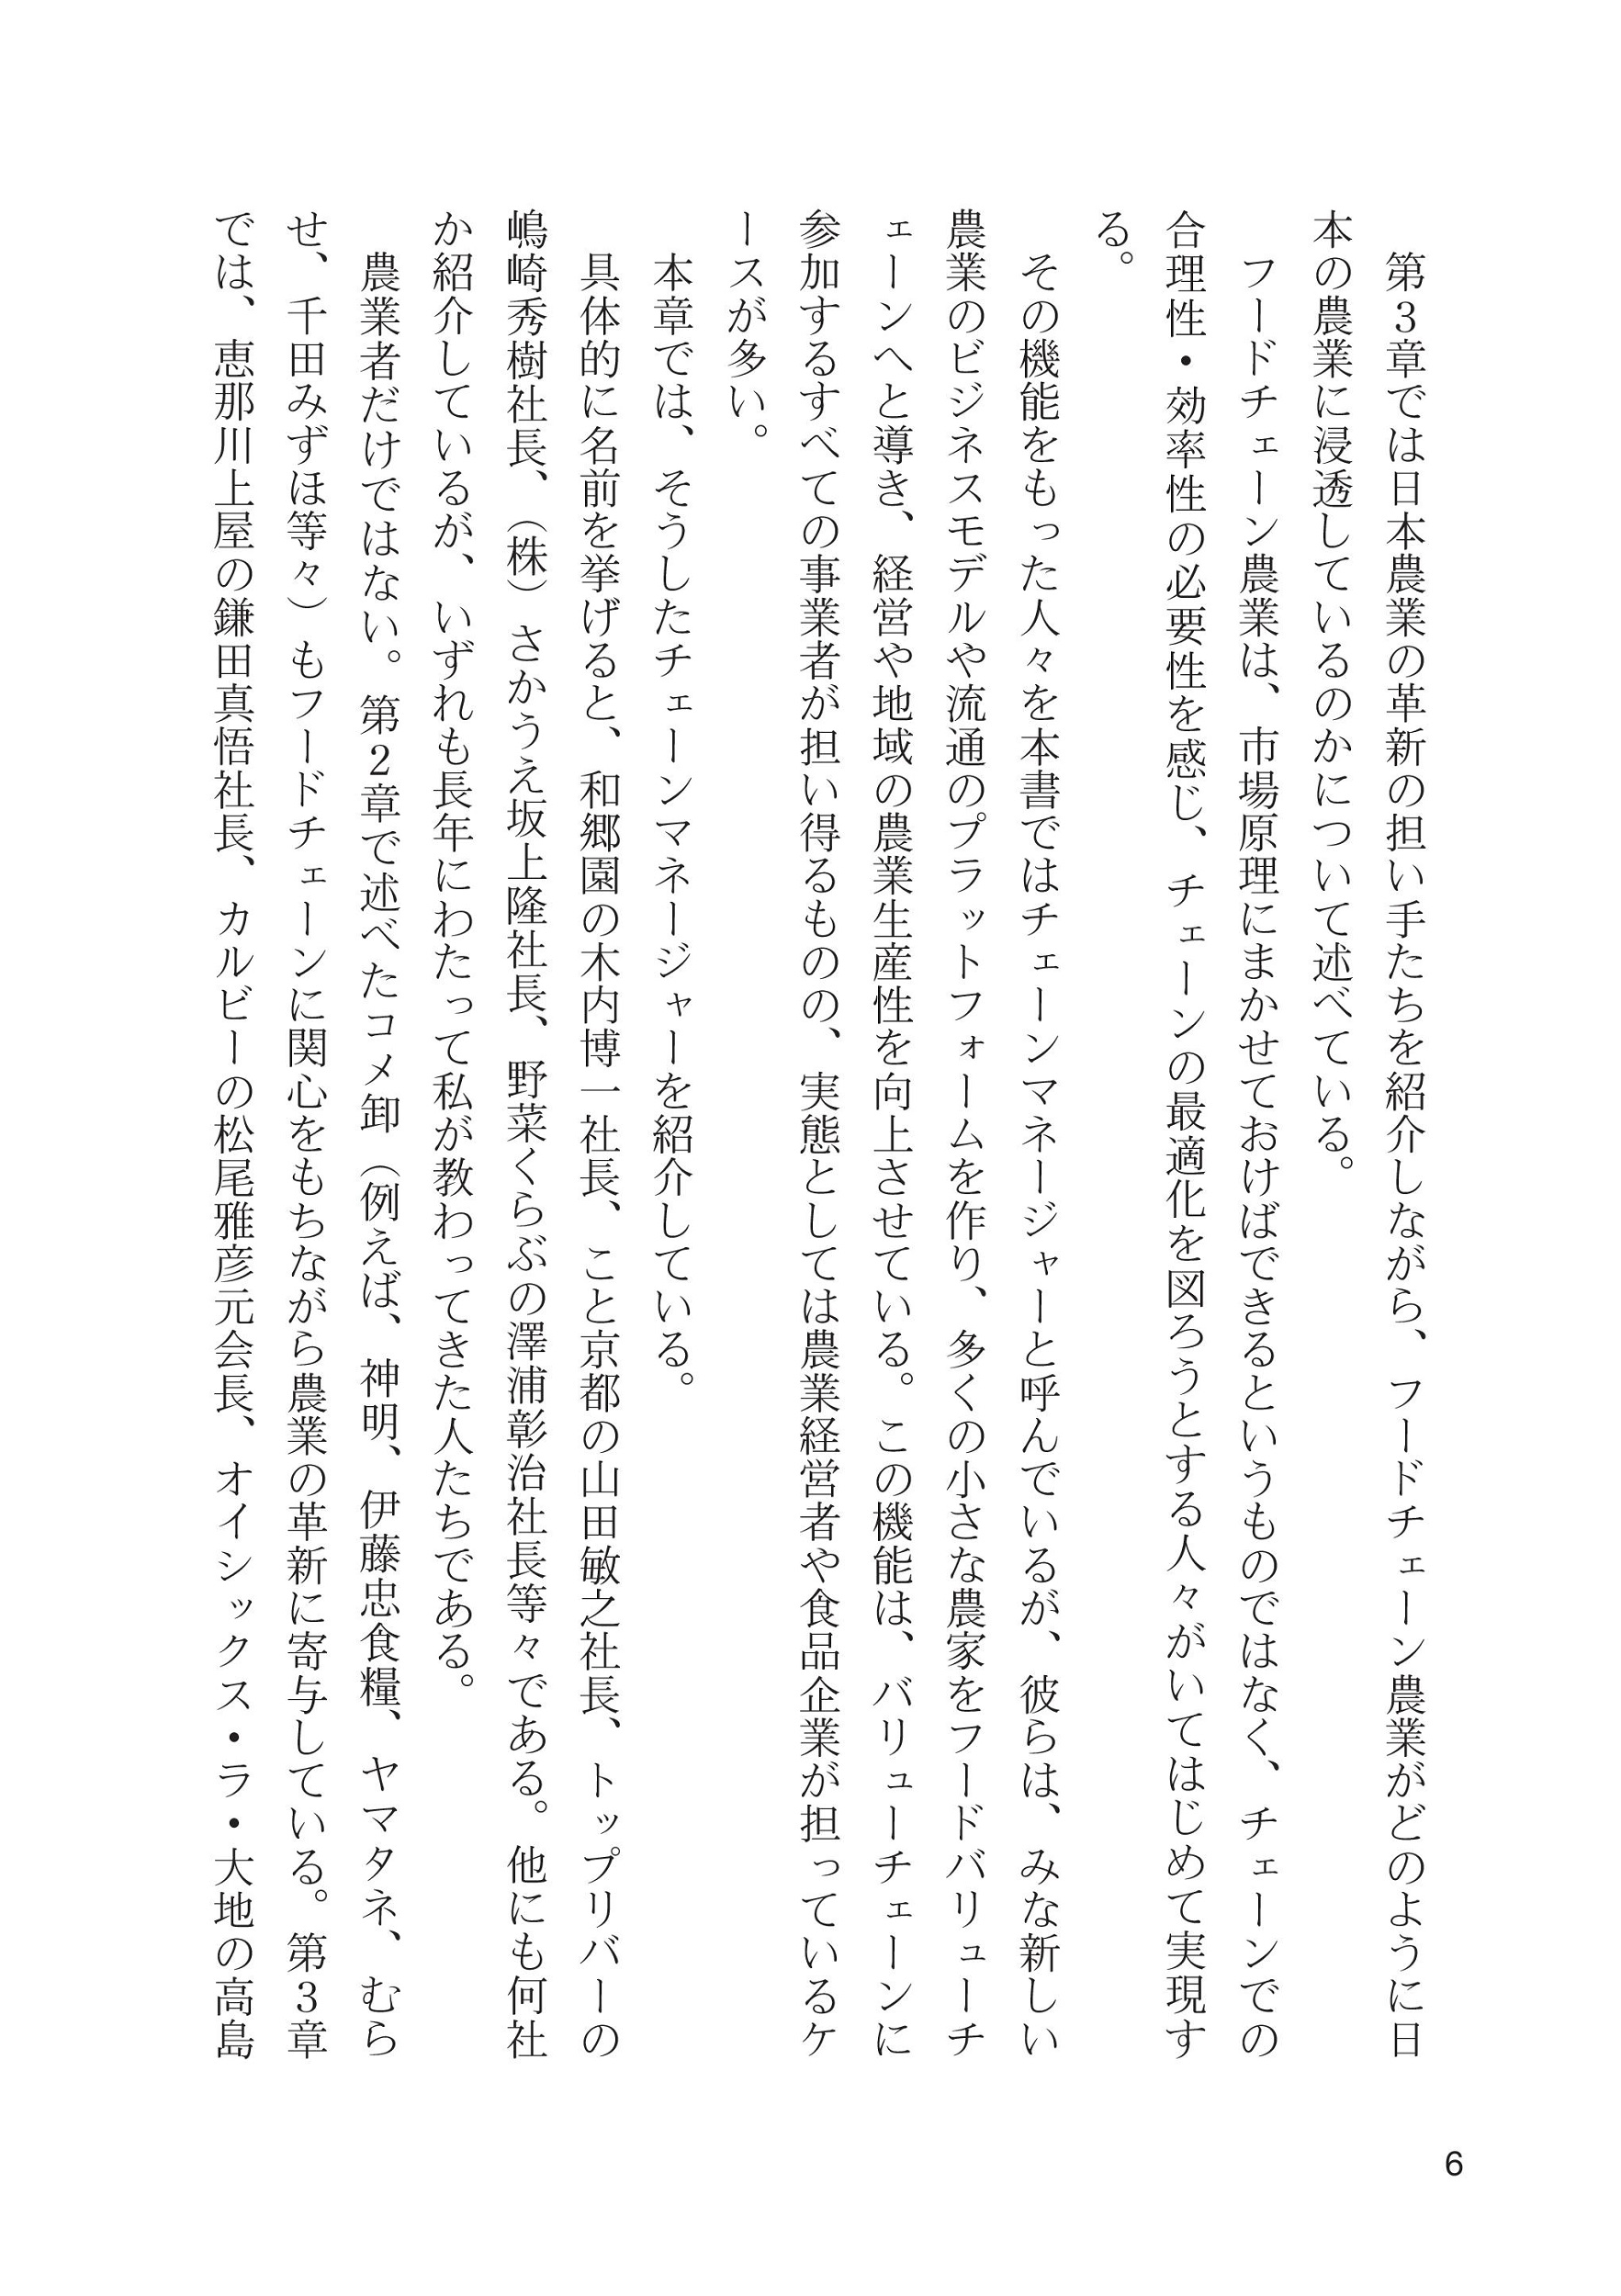 第３章では日本農業の革新の担い手たちを紹介しながら、フードチェーン農業がどのように日
本の農業に浸透しているのかについて述べている。
　フードチェーン農業は、市場原理にまかせておけばできるというものではなく、チェーンでの
合理性・効率性の必要性を感じ、チェーンの最適化を図ろうとする人々がいてはじめて実現す
る。
　その機能をもった人々を本書ではチェーンマネージャーと呼んでいるが、彼らは、みな新しい
農業のビジネスモデルや流通のプラットフォームを作り、多くの小さな農家をフードバリューチ
ェーンへと導き、経営や地域の農業生産性を向上させている。この機能は、バリューチェーンに
参加するすべての事業者が担い得るものの、実態としては農業経営者や食品企業が担っているケ
ースが多い。
　本章では、そうしたチェーンマネージャーを紹介している。
　具体的に名前を挙げると、和郷園の木内博一社長、こと京都の山田敏之社長、トップリバーの
嶋崎秀樹社長、（株）さかうえ坂上隆社長、野菜くらぶの澤浦彰治社長等々である。他にも何社
か紹介しているが、いずれも長年にわたって私が教わってきた人たちである。
　農業者だけではない。第２章で述べたコメ卸（例えば、神明、伊藤忠食糧、ヤマタネ、むら
せ、千田みずほ等々）もフードチェーンに関心をもちながら農業の革新に寄与している。第３章
では、恵那川上屋の鎌田真悟社長、カルビーの松尾雅彦元会長、オイシックス・ラ・大地の高島
6